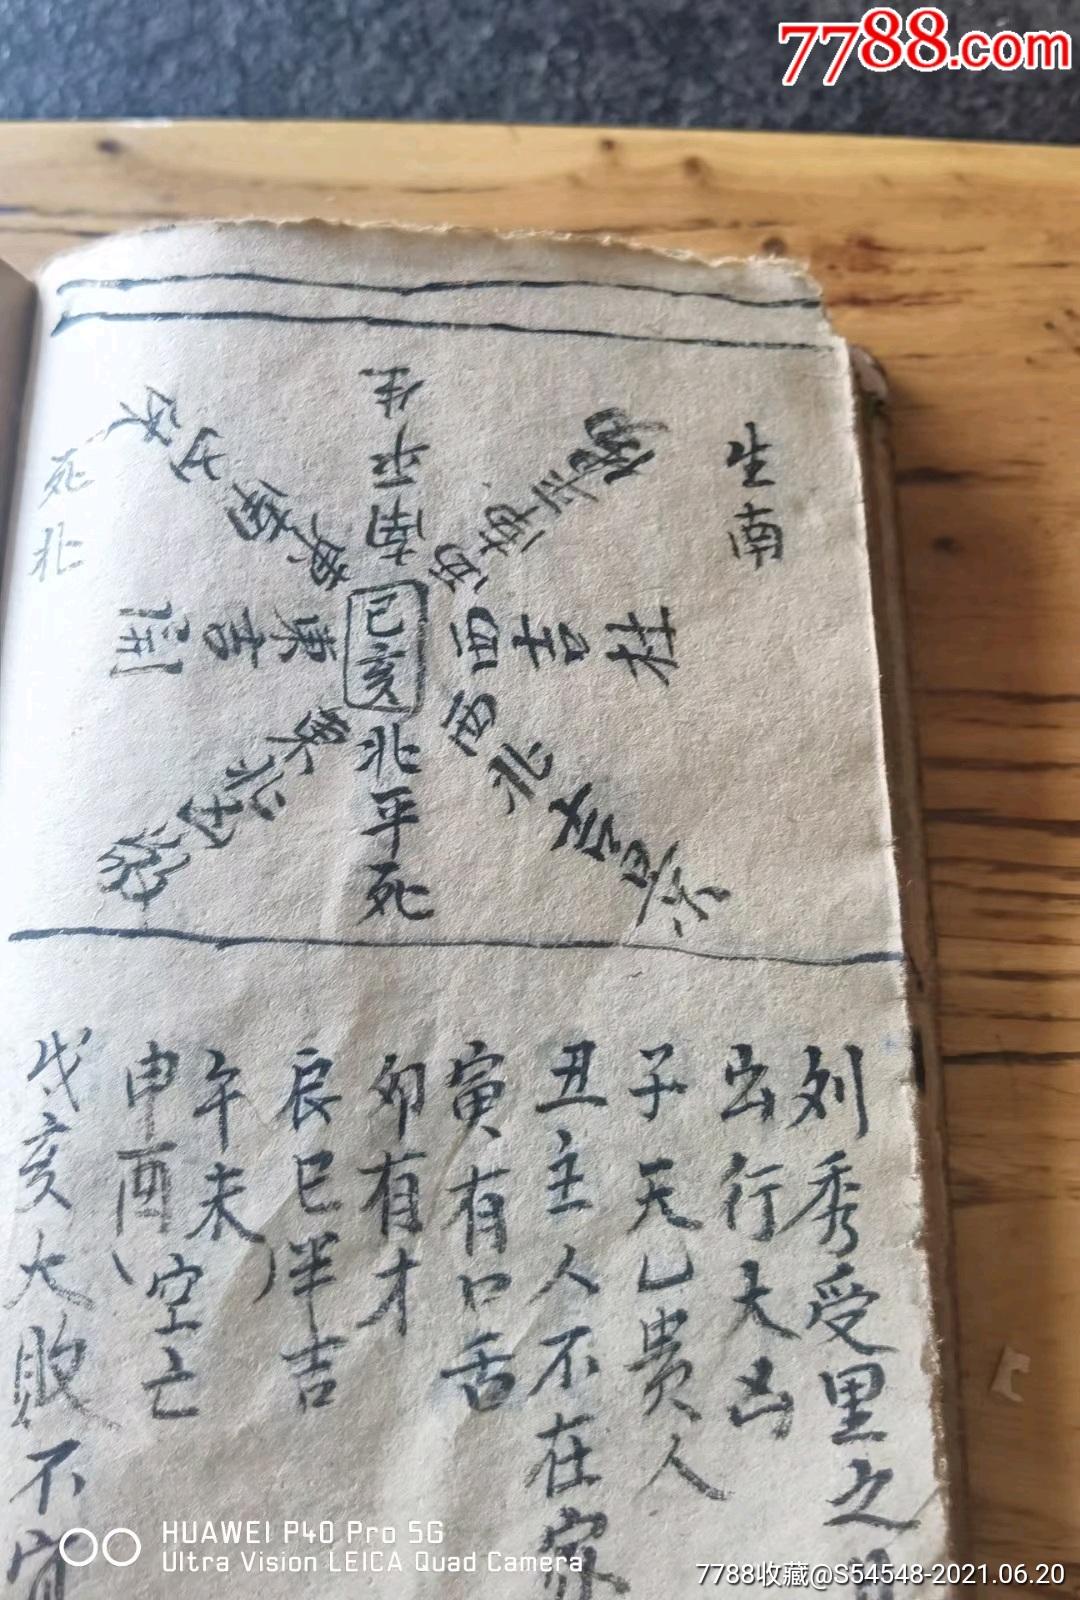 7788.com
生南
生平南
傷平東西
杜吉西
西北吉景
北平死
東北凶
開吉東
凶南東
死北
己亥
刘秀受里之日
出行大凶
子天乙贵人
丑主人不在家
寅有口舌
卯有才
辰巳半吉
午未
申酉空亡
戌亥大败不宜
HUAWEI P40 Pro 5G
Ultra Vision LEICA Quad Camera
7788收藏@S54548-2021.06.20